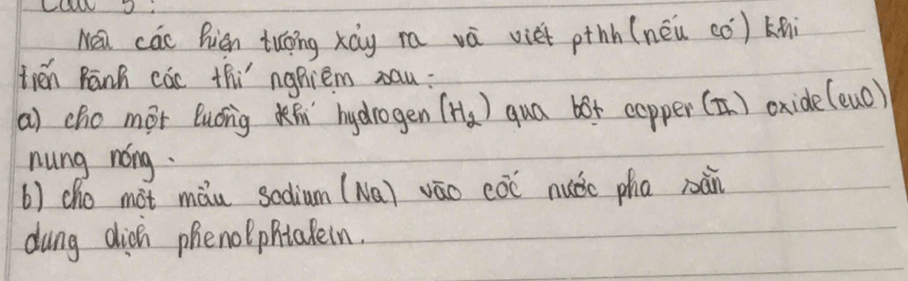 Câu 5:
Nêu các hiện tượng xảy ra và viết pthh (nếu có) khi
tiến hành các thí nghiệm sau:
a) cho một luồng khí hydrogen (H₂) qua bột copper (II) oxide (CuO)
nung nóng.
b) cho một mẩu sodium (Na) vào cốc nước pha sẵn
dung dịch phenolphtalein.